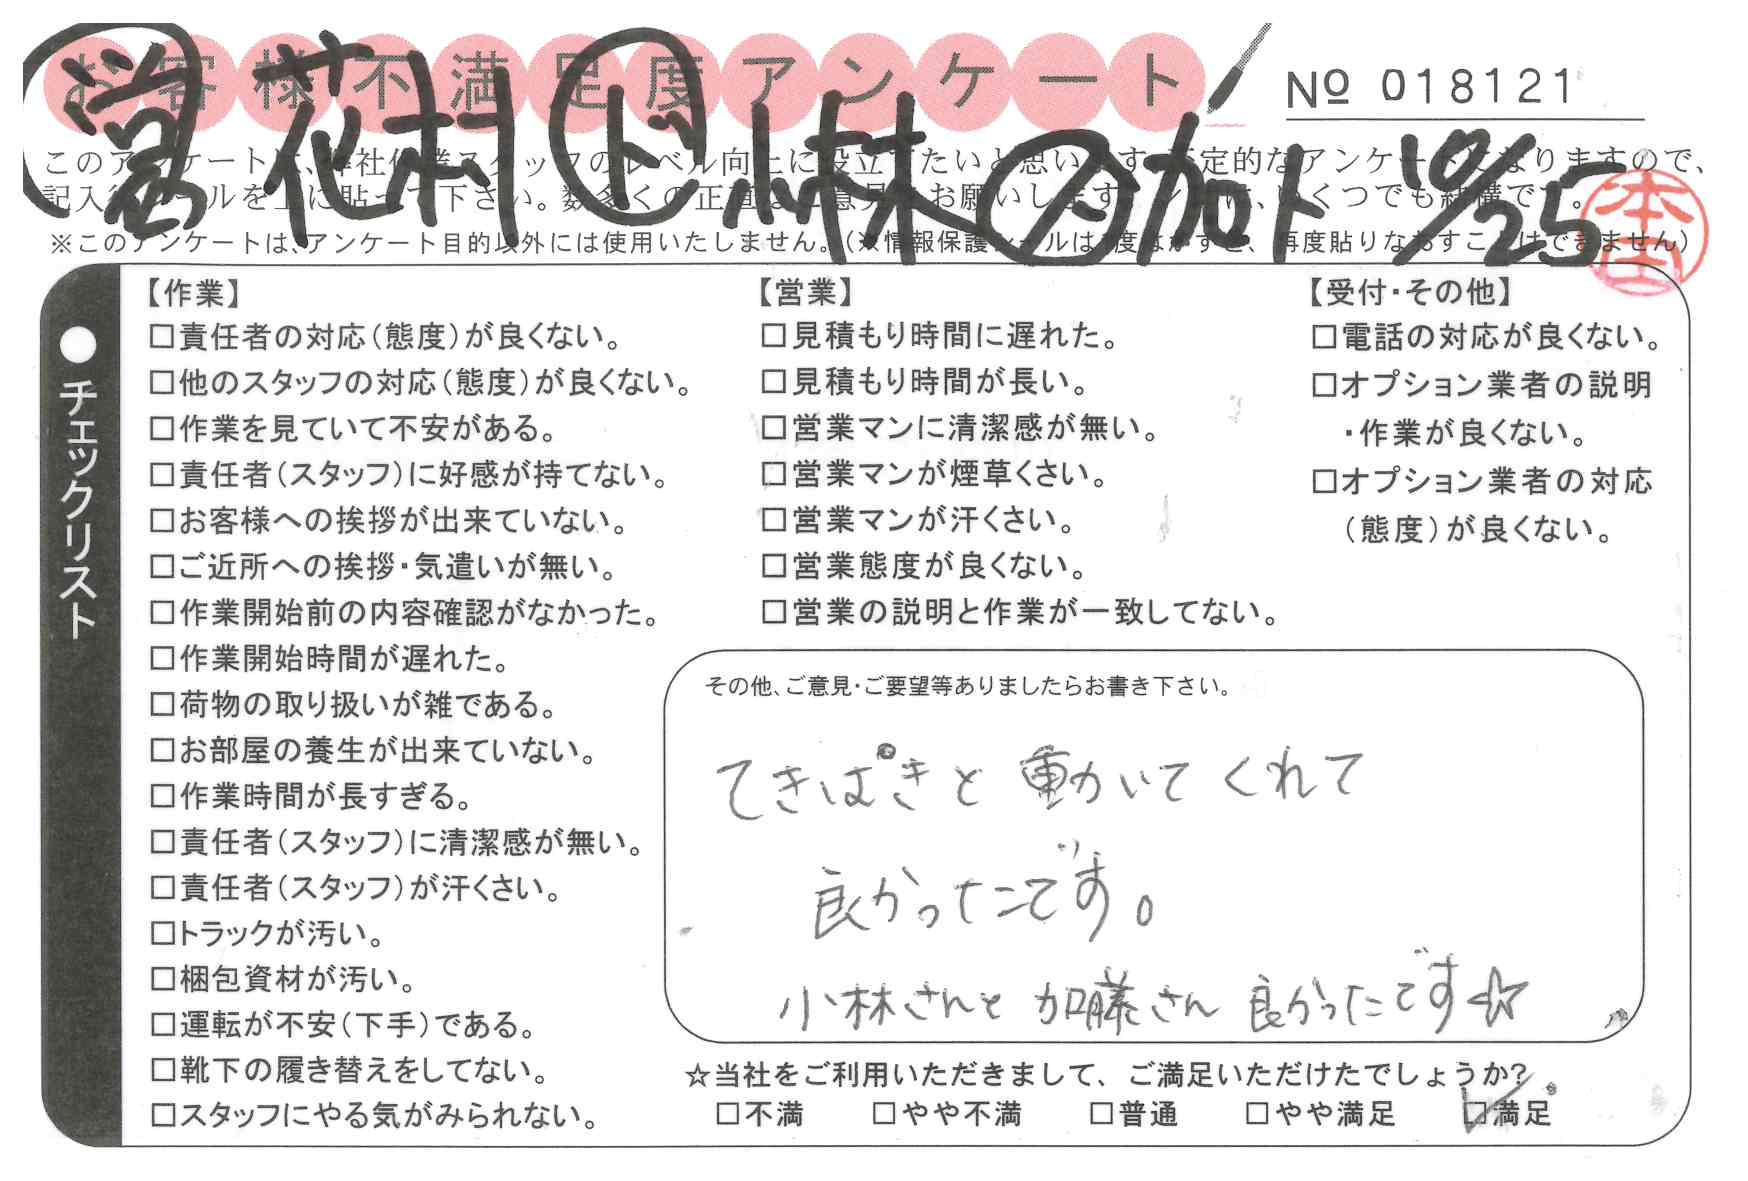 お客様不満足度アンケート
№ 018121
営 花村 ド 小林 加ト 10/25
このアンケートは、弊社作業スタッフのレベル向上に役立てたいと思います。不定的なアンケートとなりますので、
記入後シールを上に貼って下さい。数多くの正直なご意見をお願いします。いくつでも結構です。
※このアンケートは、アンケート目的以外には使用いたしません。(※情報保護シールは1度はがすと、再度貼りなおすことはできません)
●チェックリスト
【作業】
□責任者の対応(態度)が良くない。
□他のスタッフの対応(態度)が良くない。
□作業を見ていて不安がある。
□責任者(スタッフ)に好感が持てない。
□お客様への挨拶が出来ていない。
□ご近所への挨拶・気遣いが無い。
□作業開始前の内容確認がなかった。
□作業開始時間が遅れた。
□荷物の取り扱いが雑である。
□お部屋の養生が出来ていない。
□作業時間が長すぎる。
□責任者(スタッフ)に清潔感が無い。
□責任者(スタッフ)が汗くさい。
□トラックが汚い。
□梱包資材が汚い。
□運転が不安(下手)である。
□靴下の履き替えをしてない。
□スタッフにやる気がみられない。
【営業】
□見積もり時間に遅れた。
□見積もり時間が長い。
□営業マンに清潔感が無い。
□営業マンが煙草くさい。
□営業マンが汗くさい。
□営業態度が良くない。
□営業の説明と作業が一致してない。
【受付・その他】
□電話の対応が良くない。
□オプション業者の説明
・作業が良くない。
□オプション業者の対応
(態度)が良くない。
その他、ご意見・ご要望等ありましたらお書き下さい。
てきぱきと動いてくれて
良かったです。
小林さんと加藤さん良かったです☆
☆当社をご利用いただきまして、ご満足いただけたでしょうか?
□不満 □やや不満 □普通 □やや満足 ☑満足